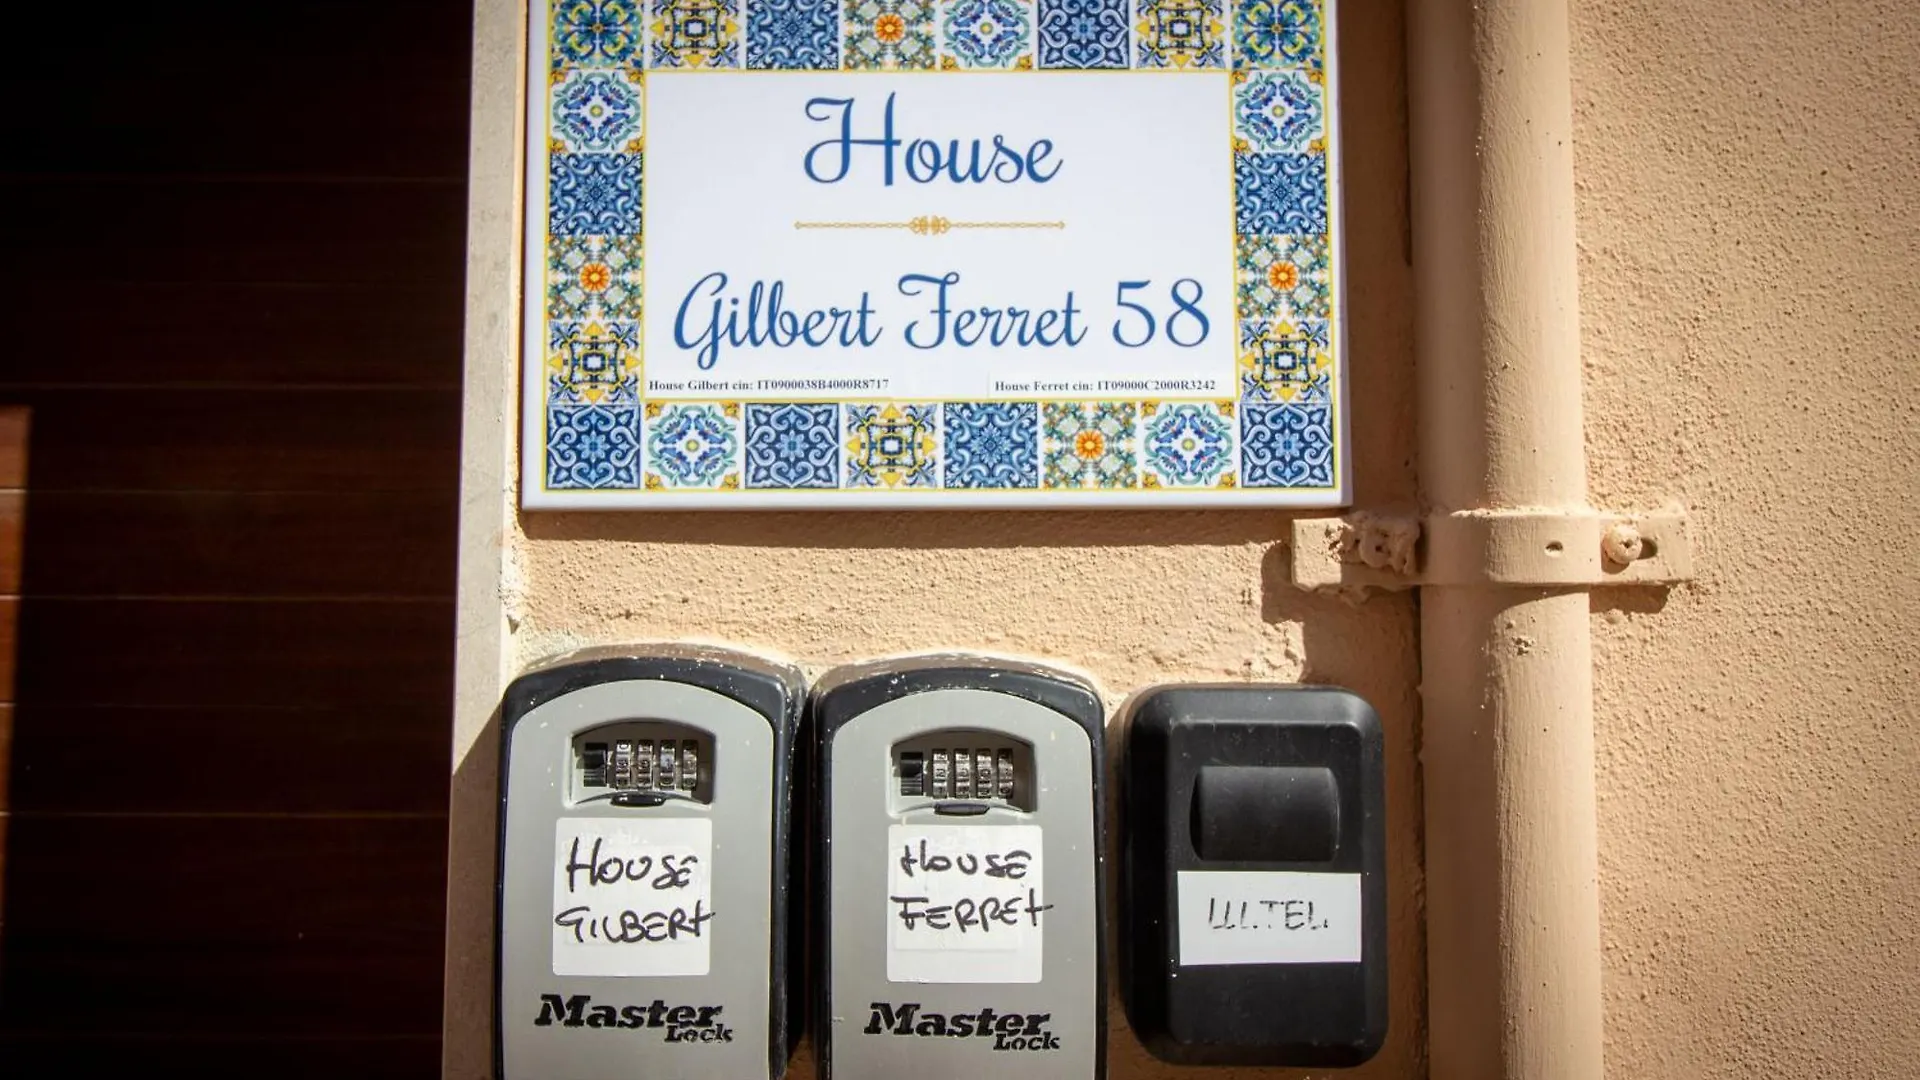 House
Gilbert Ferret 58
House Gilbert cin: IT0900038B4000R8717
House Ferret cin: IT09000C2000R3242
HOUSE
GILBERT
Master
Lock
HOUSE
FERRET
Master
Lock